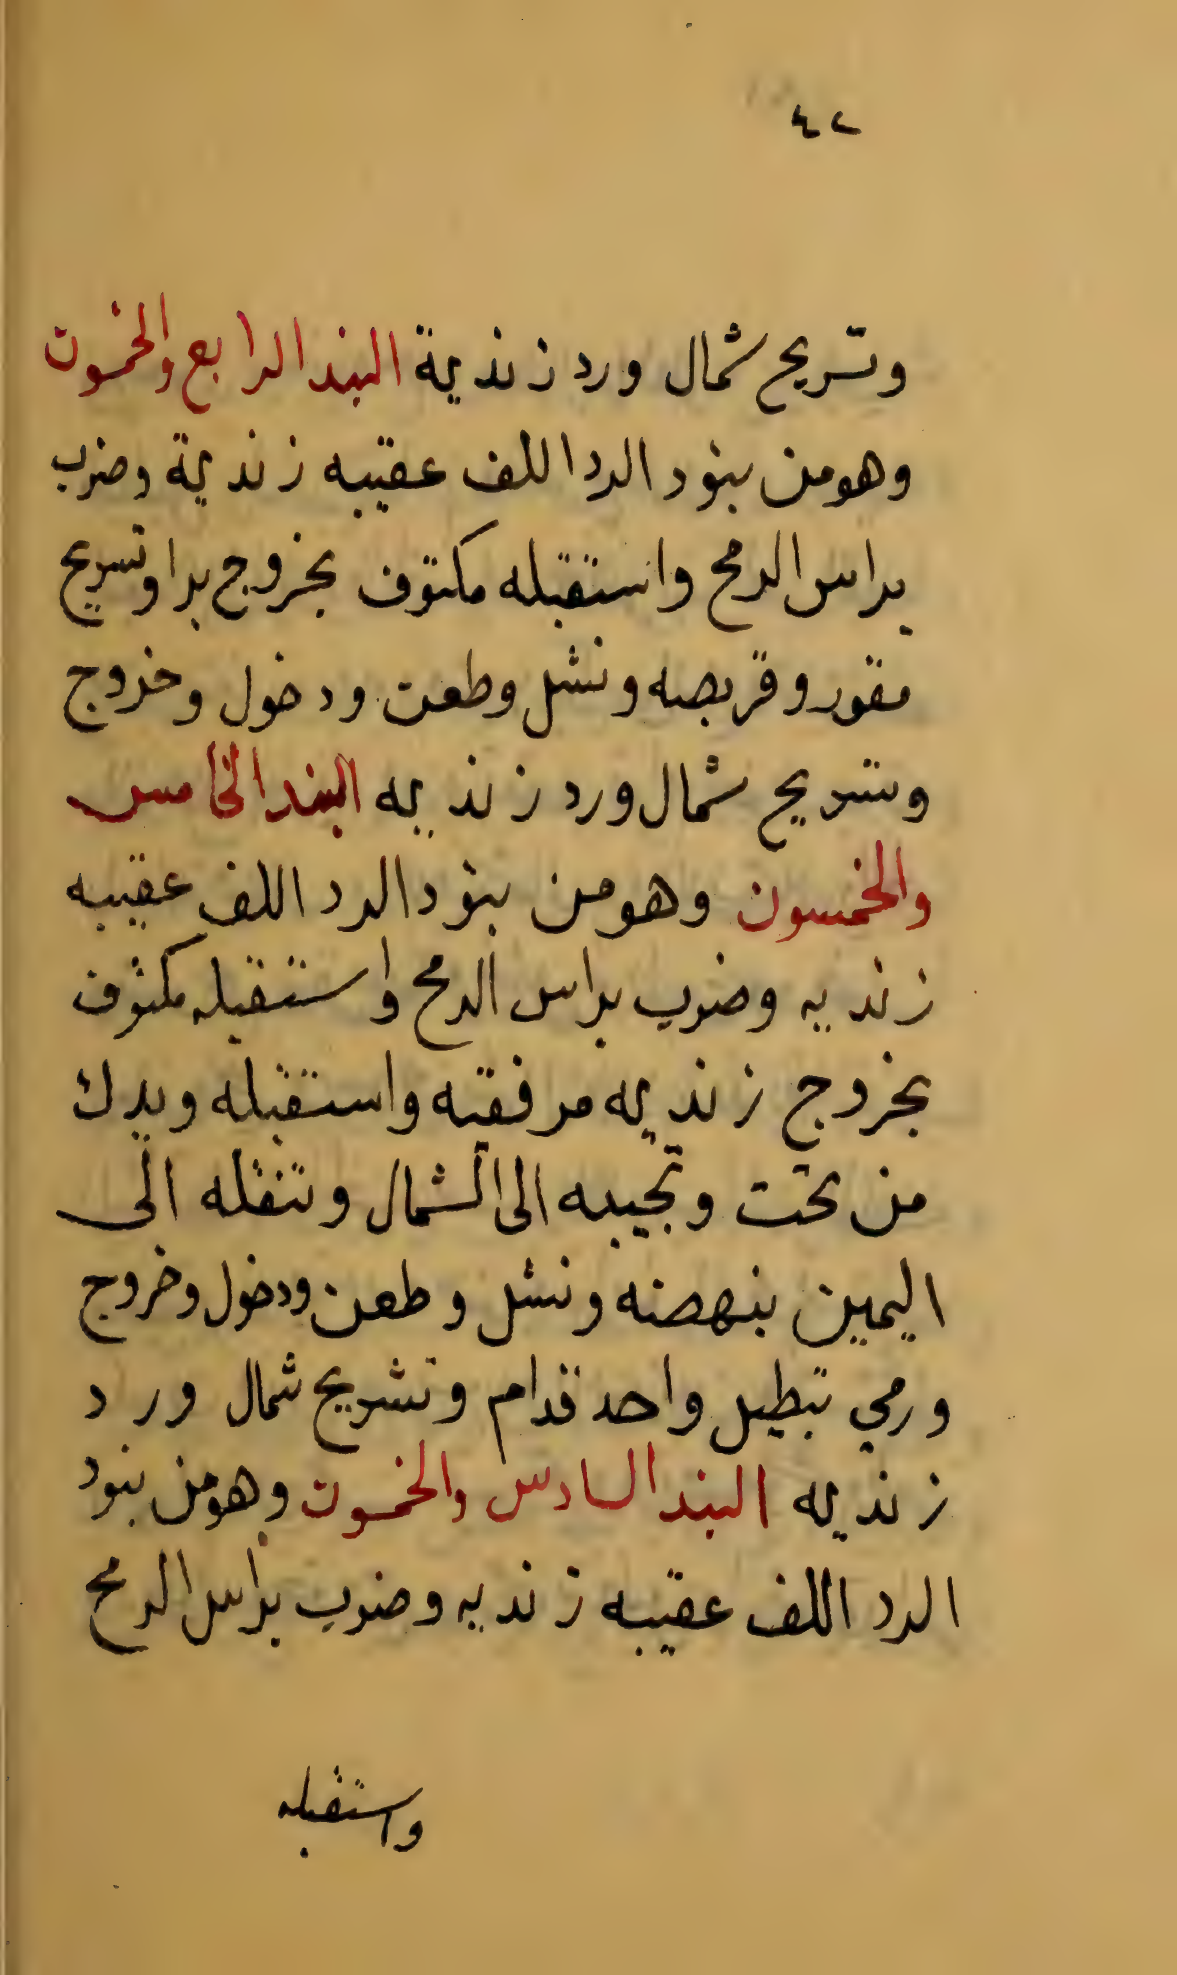 ٤٢
وتسريح شمال ورد زندية البند الرابع والخمسون
وهو من بنود الرد اللف عقيبه زندية وضرب
براس الرمح واستقبله مكتوف بخروج برا وتسريح
مقور وقربصه ونشل وطعن ودخول وخروج
وتسريح شمال ورد زنديه البند الخامس
والخمسون وهو من بنود الرد اللف عقيبه
زنديه وضرب براس الرمح واستقبله مكتوف
بخروج زنديه مرفقته واستقبله ويدك
من تحت وتجيبه الى الشمال وتنقله الى
اليمين بنهضته ونشل وطعن ودخول وخروج
ورمي تبطيل واحد قدام وتشريح شمال ورد
زنديه البند السادس والخمسون وهو من بنود
الرد اللف عقيبه زنديه وضرب براس الرمح
واستقبله